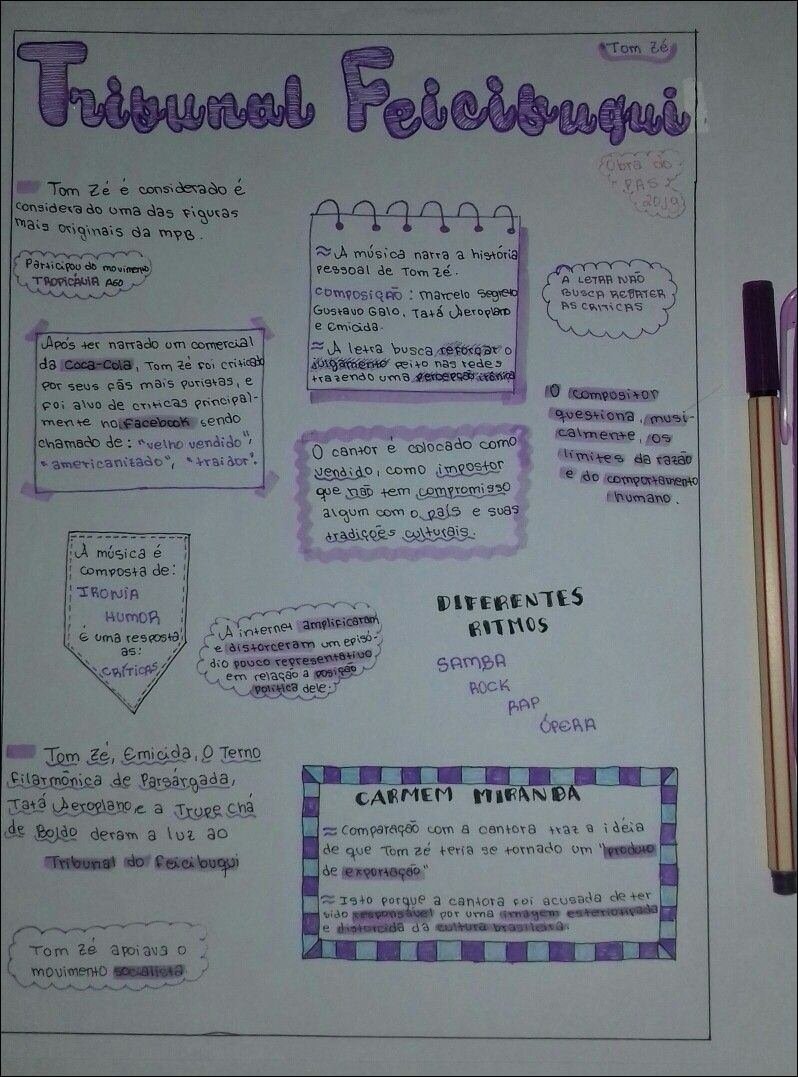 Tom Zé
Tribunal Feicibuqui
Obra do
PAS 2
2019
Tom Zé é considerado é
considerado uma das figuras
mais originais da MPB.
Participou do movimento
TROPICÁLIA A60
Após ter narrado um comercial
da Coca-Cola, Tom Zé foi criticado
por seus fãs mais puristas, e
foi alvo de criticas principal-
mente no facebook sendo
chamado de: "velho vendido",
"americanizado", "traidor".
≈ A música narra a história
pessoal de Tom Zé.
COMPOSIÇÃO: Marcelo Segreto
Gustavo Galo, Tatá Aeroplano
e Emicida.
≈ A letra busca reforçar o
julgamento feito nas redes
trazendo uma percepção irônica
A LETRA NÃO
BUSCA REBATER
AS CRITICAS
O compositor
questiona, musi-
calmente, os
limites da razão
e do comportamento
humano.
O cantor é colocado como
vendido, como impostor
que não tem compromisso
algum com o país e suas
tradições culturais.
A música é
composta de:
IRONIA
HUMOR
É uma resposta
as:
CRÍTICAS
A internet amplificaram
e distorceram um episó-
dio pouco representativo
em relação a posição
política dele.
DIFERENTES
RITMOS
SAMBA
ROCK
RAP
ÓPERA
Tom Zé, Emicida, O Terno
Filarmônica de Parsárgada,
Tatá Aeroplano e a Trupe Chá
de Boldo deram a luz ao
Tribunal do Feicibuqui
CARMEM MIRANDA
≈ Comparação com a cantora traz a idéia
de que Tom Zé teria se tornado um "produto
de exportação"
≈ Isto porque a cantora foi acusada de ter
sido responsável por uma imagem esteriotipada
e distorcida da cultura brasileira.
Tom Zé apoiava o
movimento socialista